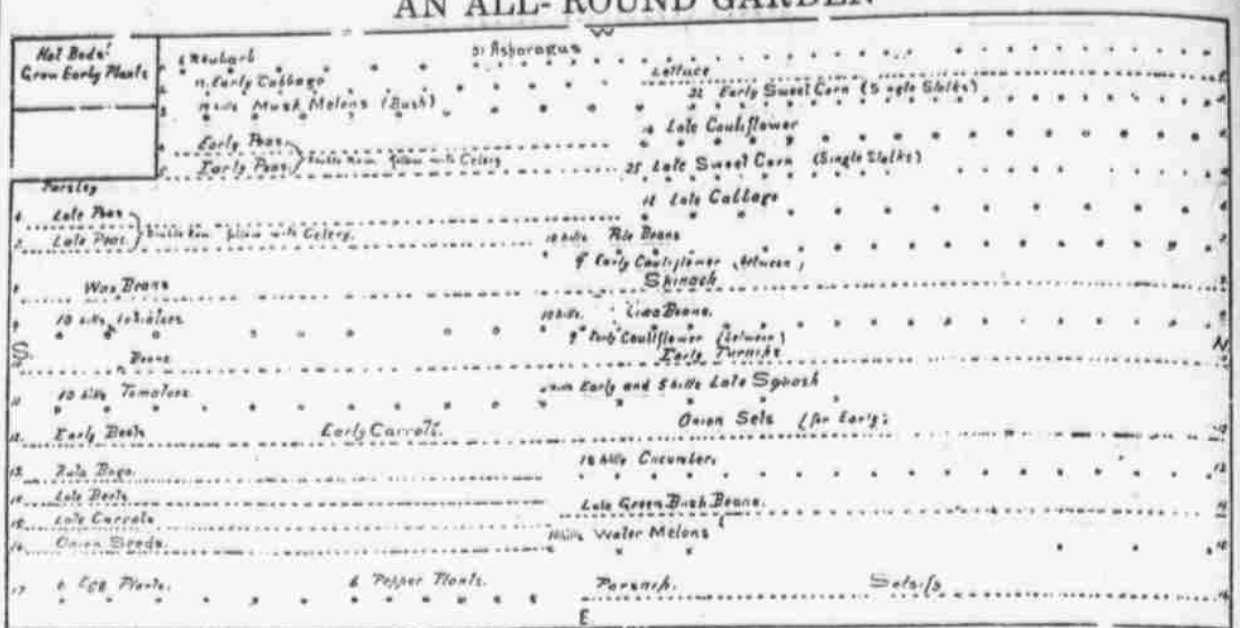 AN ALL-ROUND GARDEN
W
Hot Beds
Grow Early Plants
6 Rhubarb
31 Asparagus
11 Early Cabbage
Lettuce
Musk Melons (Bush)
Early Sweet Corn (Single Stalks)
Early Peas
Late Cauliflower
Early Peas
Double Row follow with Celery
25 Late Sweet Corn (Single Stalks)
Parsley
Late Peas
Late Cabbage
Late Peas
Double Row follow with Celery.
Pole Beans
9 Early Cauliflower between
Wax Beans
Spinach
10 hills
Lima Beans.
9 Early Cauliflower (between)
S.
N
Early Turnips
10 hills Tomatoes
Early and 5 hills Late Squash
Onion Sets (for Early)
12. Early Beets
Early Carrots.
Cucumbers
Late Beets
Late Green Bush Beans.
Late Carrots
Onion Seeds
Water Melons
17 6 Egg Plants.
6 Pepper Plants.
Parsnip.
Salsify
E.